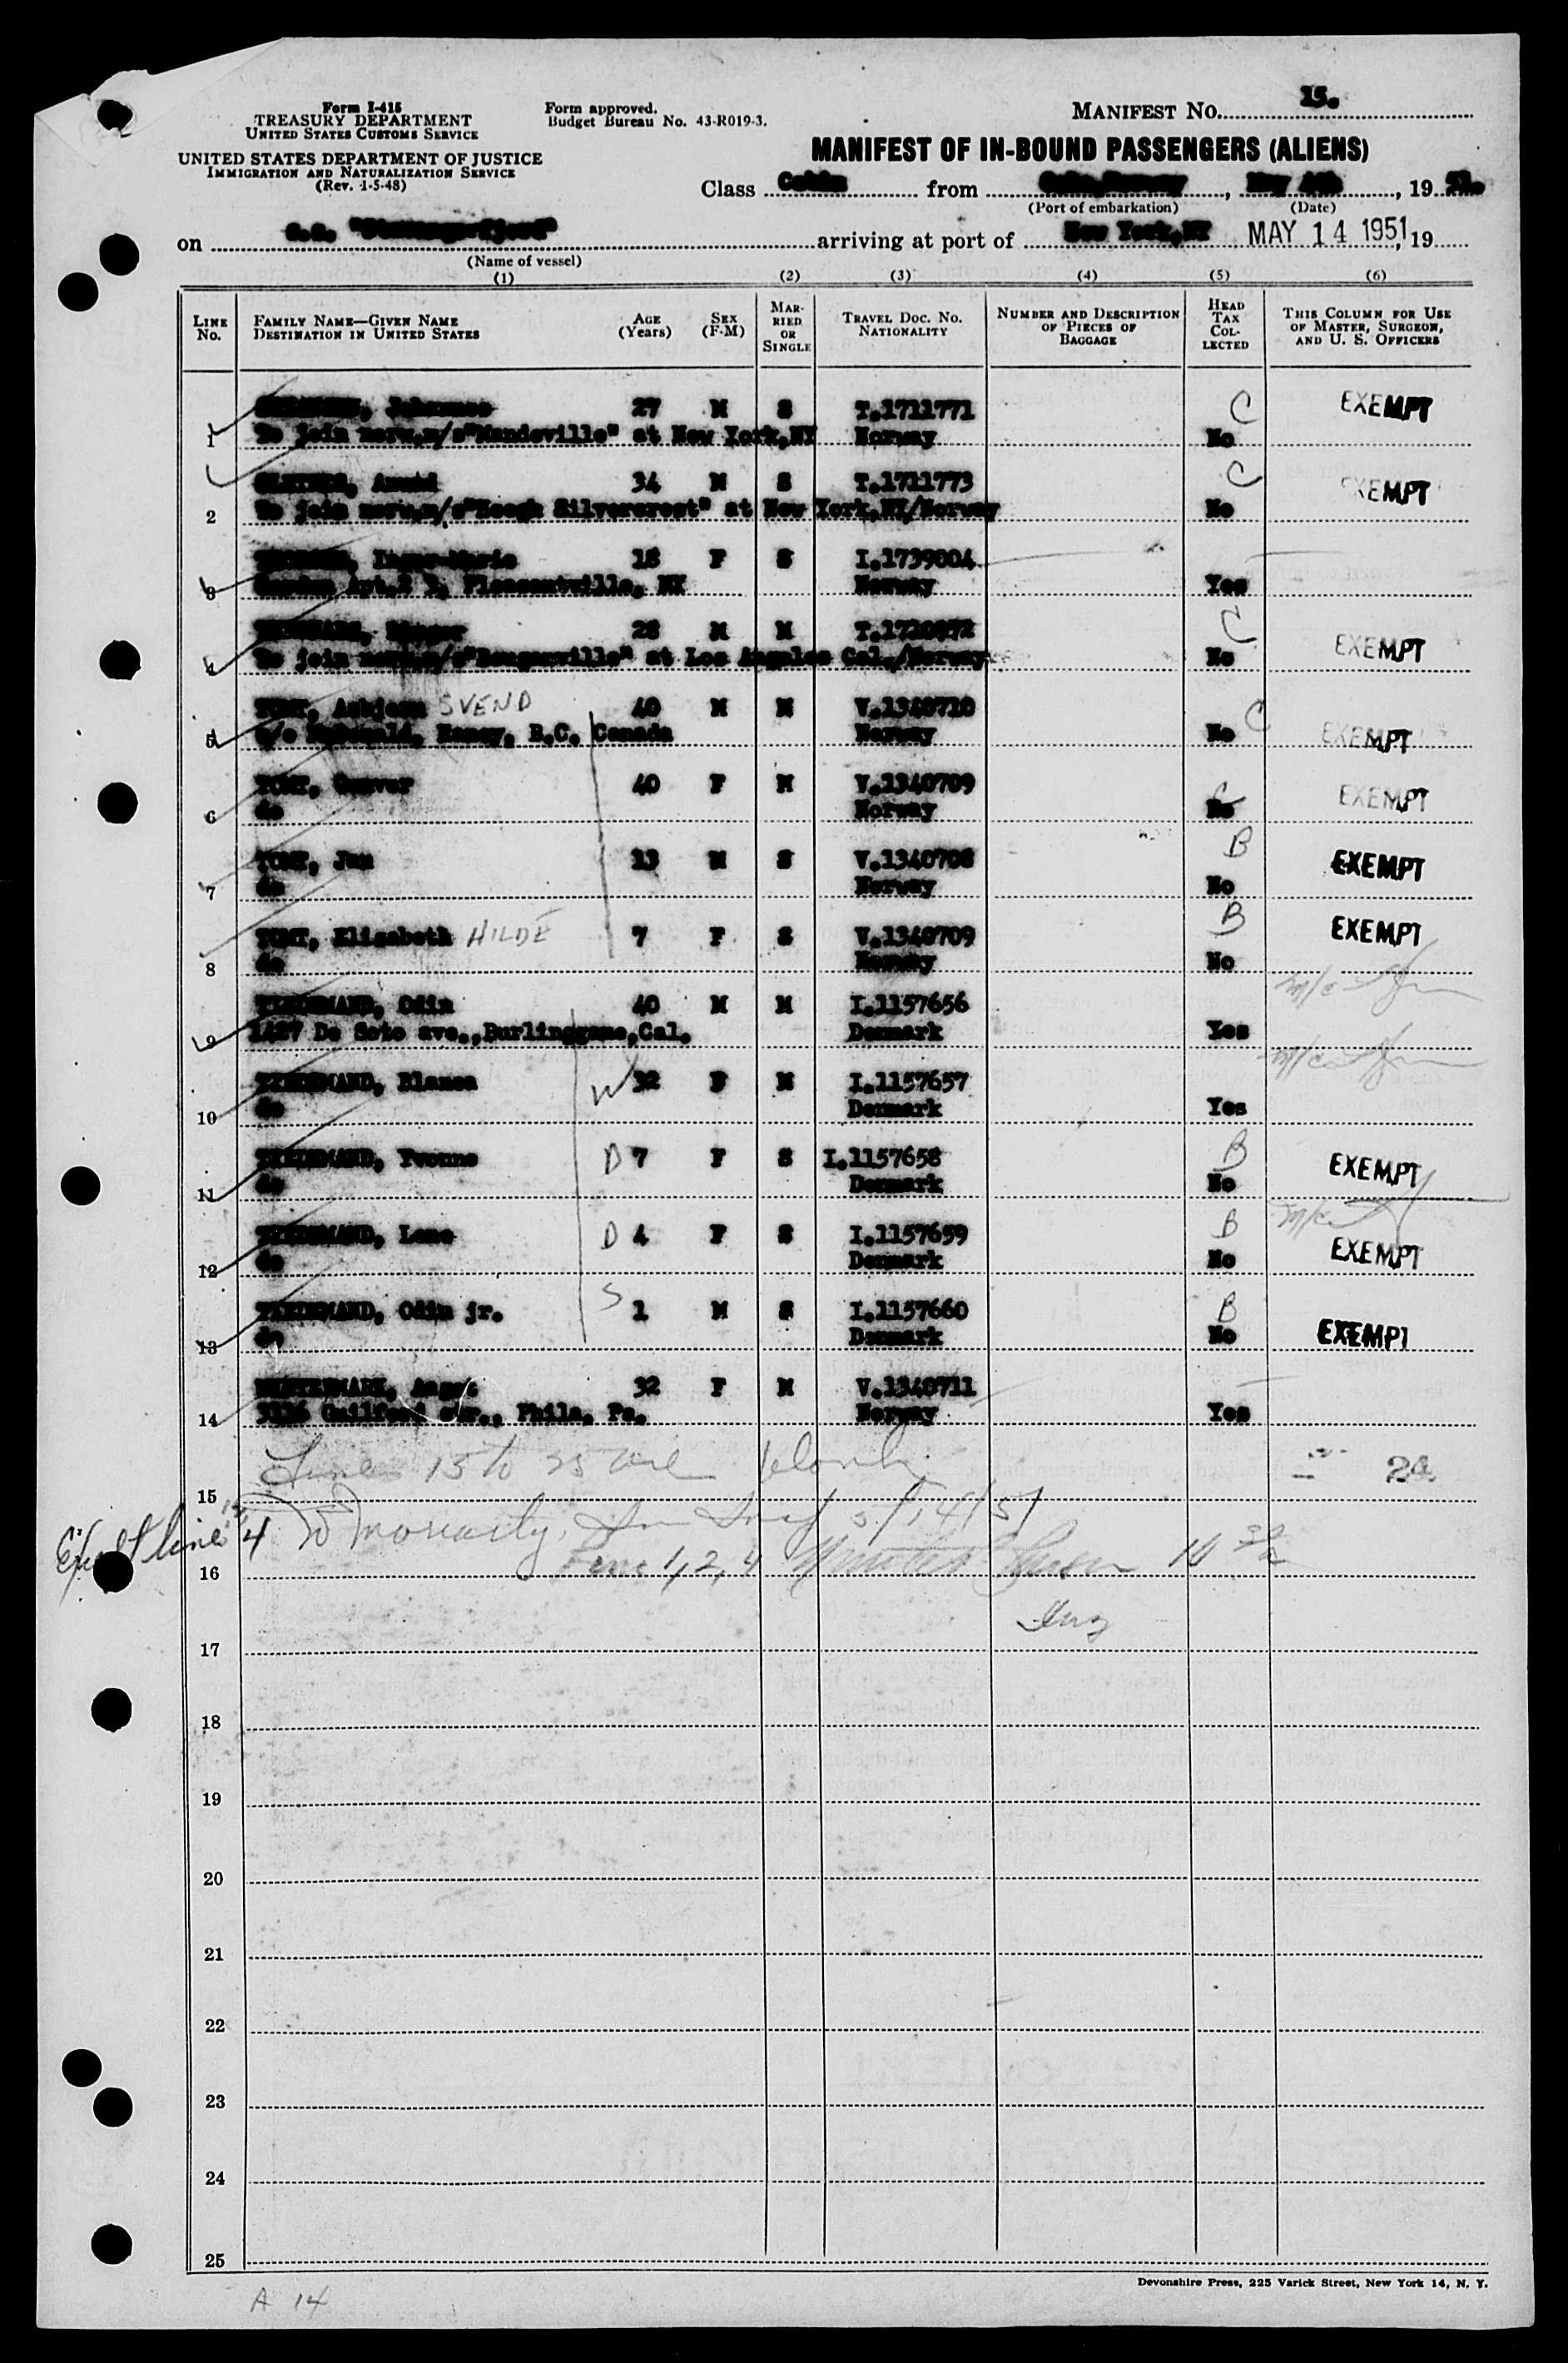 Form I-415
TREASURY DEPARTMENT
UNITED STATES CUSTOMS SERVICE
UNITED STATES DEPARTMENT OF JUSTICE
IMMIGRATION AND NATURALIZATION SERVICE
(Rev. 1-5-48)
Form approved.
Budget Bureau No. 43-R019-3.
MANIFEST NO. 15.
MANIFEST OF IN-BOUND PASSENGERS (ALIENS)
Class Cabin from Oslo, Norway, May 4th, 19 51.
(Port of embarkation) (Date)
on S.S. "Stavangerfjord" arriving at port of New York,NY MAY 14 1951, 19
(Name of vessel)
(1) (2) (3) (4) (5) (6)
LINE NO. FAMILY NAME—GIVEN NAME DESTINATION IN UNITED STATES AGE (Years) SEX (F-M) MARRIED OR SINGLE TRAVEL DOC. NO. NATIONALITY NUMBER AND DESCRIPTION OF PIECES OF BAGGAGE HEAD TAX COLLECTED THIS COLUMN FOR USE OF MASTER, SURGEON, AND U. S. OFFICERS
Johannes 27 M S T.1711771 C EXEMPT
1 To join norw.m/s"Mandeville" at New York,NY Norway No
34 M S T.1711773 C EXEMPT
2 To join norw.m/s"Hoegh Silvercrest" at New York,NY/Norway No
18 F S I.1739004
3 Pleasantville, NY Norway Yes
28 M M C EXEMPT
4 To join norw.m/s"Bougainville" at Los Angeles Cal./Norway No
TOMT, Asbjorn SVEND 40 M M V.1340710 C EXEMPT
5 c/o Haney, B.C. Canada Norway No
TOMT, Gunvor 40 F M V.1340709 C EXEMPT
6 do Norway No
TOMT, Jan 13 M S V.1340708 B EXEMPT
7 do Norway No
TOMT, Elisabeth HILDE 7 F S V.1340709 B EXEMPT
8 do Norway No
Odin 40 M M I.1157656
9 1427 De Soto ave.,Burlinggame,Cal. Denmark Yes
Blanca W 32 F M I.1157657
10 do Denmark Yes
Yvonne D 7 F S I.1157658 B EXEMPT
11 do Denmark No
Lene D 4 F S I.1157659 B EXEMPT
12 do Denmark No
Odin jr. S 1 M S I.1157660 B EXEMPT
13 do Denmark No
32 F M V.1340711
14 Guilford str., Phila. Pa. Norway Yes
Lines 15 to 25 are blank
24
15
Except line 4 5/14/51
Line 1, 2, 4
16
17
18
19
20
21
22
23
24
25
Devonshire Press, 225 Varick Street, New York 14, N. Y.
A 14